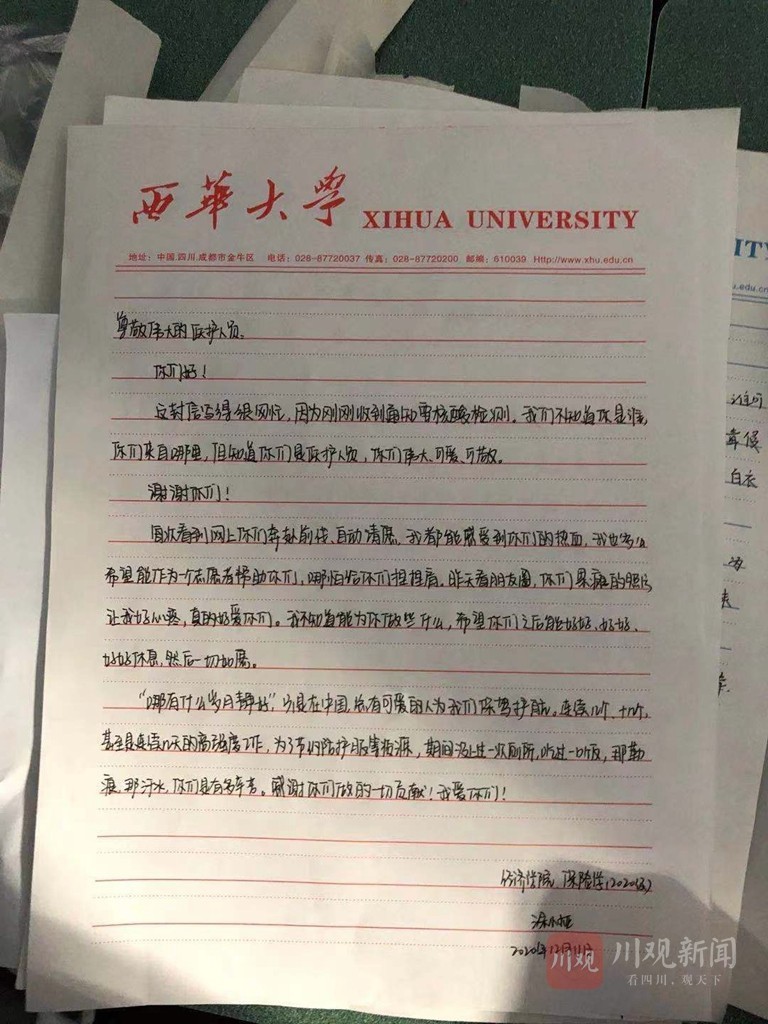 西華大学 XIHUA UNIVERSITY
地址：中国.四川.成都市金牛区 电话：028-87720037 传真：028-87720200 邮编：610039 Http://www.xhu.edu.cn
尊敬伟大的医护人员,
你们好！
这封信写得很匆忙，因为刚刚收到通知要核酸检测。我们不知道你是谁,
你们来自哪里，但知道你们是医护人员，你们伟大、可爱、可敬。
谢谢你们！
每次看到网上你们奔赴前线、自动请愿，我都能感受到你们的热血，我也多么
希望能作为一个志愿者帮助你们，哪怕给你们捏捏肩。昨天看朋友圈，你们累瘫的照片
让我好心疼，真的好爱你们。我不知道能为你做些什么，希望你们之后能好好、好好、
好好休息，然后一切如愿。
“哪有什么岁月静好”，只是在中国，总有可爱的人为我们保驾护航。连续几个、十几个,
甚至是连续几天的高强度工作，为了节约防护服等物资，期间没上过一次厕所，吃过一口饭，那勒
痕，那汗水，你们是有多辛苦。感谢你们做的一切贡献！我爱你们！
经济学院 保险学,2020
2020年12月11日
ITY
.edu.cn
白衣
川观
川观新闻
看四川，观天下